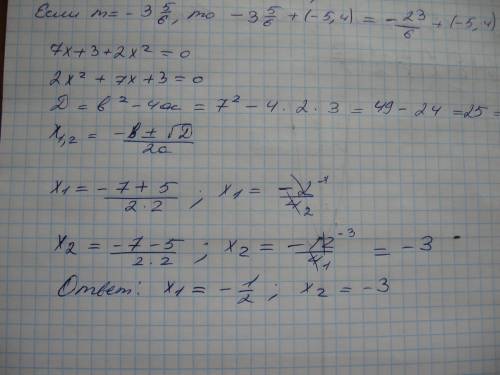 Если m = -3 5/6, то -3 5/6 + (-5,4) = -23/6 + (-5,4)
7x + 3 + 2x² = 0
2x² + 7x + 3 = 0
D = в² - 4ac = 7² - 4 · 2 · 3 = 49 - 24 = 25 =
x₁,₂ = (-в ± √D)/2a
x₁ = (-7 + 5)/(2·2) ; x₁ = -2⁻¹/4₂
x₂ = (-7 - 5)/(2·2) ; x₂ = -12⁻³/4₁ = -3
Ответ: x₁ = -1/2 ; x₂ = -3